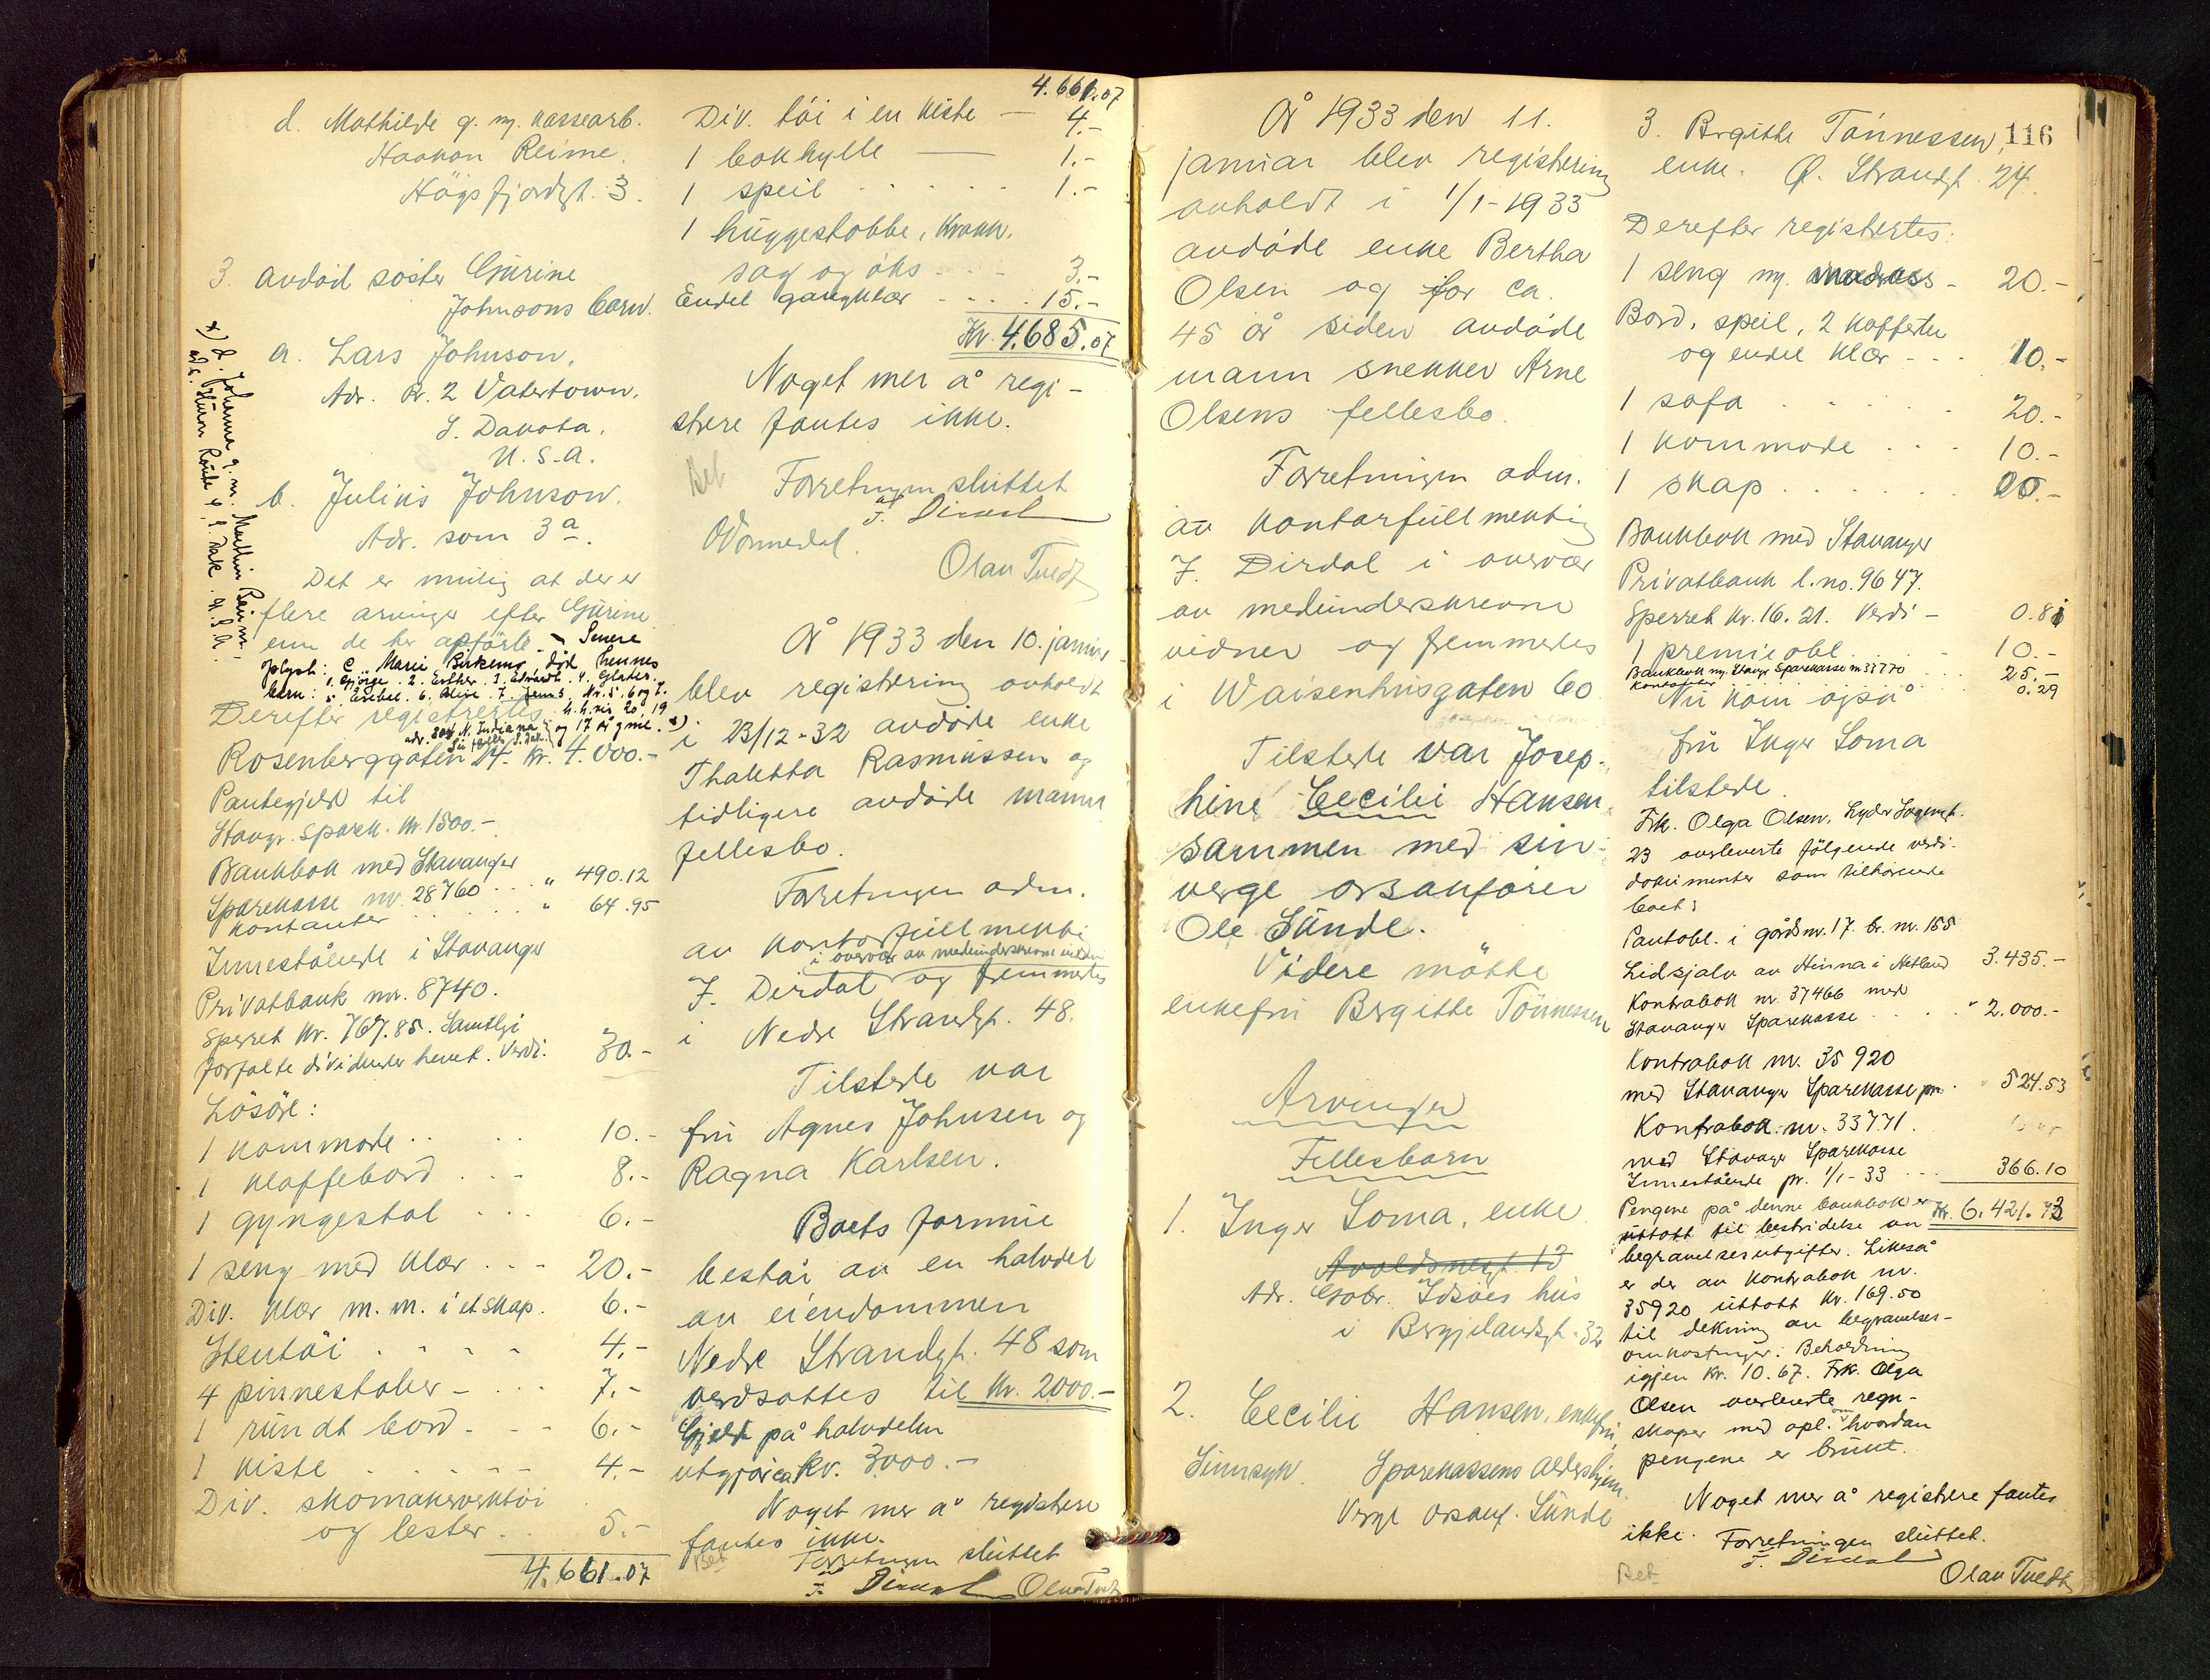 d. Mathilde g. m. kassearb.
Haakon Reime.
Högsfjordgt. 3.
3. avdöd söster Gurine
Johnsons barn.
a. Lars Johnson.
Adr. R. 2 Vatertown.
S. Dakota.
U.S.A.
b. Julius Johnson.
Adr. som 3a.
Det er mulig at der er
flere arvinger efter Gurine
enn de her opförte. Senere
oplyst: C. Marie Birkemo, död hennes
barn: 1. Görge. 2. Esther. 3. Edwardt. 4. Gladis.
5. Ethel. 6. Aline. 7. Jens. Nr. 5. 6 og 7.
h.h.vis 20, 19
og 17 år gml. x)
Derefter registrertes
Rosenberggaten 24. Kr. 4.000.-
Pantegjeld til
Stavgr. Sparek. Kr. 1500.-
Bankbok med Stavanger
Sparekasse nr. 28760 . . . " 490.12
Kontanter . . . " 64.95
Innestående i Stavanger
Privatbank nr. 8740.
Sperret Kr. 767.85. Samtlige
forfalte dividender hevet. Verdi: 30.-
Lösöre:
1 kommode . . 10.-
1 klaffebord . . . 8.-
1 gyngestol . . . 6.-
1 seng med klær . . . 20.-
Div. klær m.m. i et skap. 6.-
Stentöi . . . . 4.-
4 pinnestoler - . . . 7.-
1 rundt bord . - - 6.-
1 kiste . . . . 4.-
Div. skomakerverktöi
og lester . . 5.-
4.661.07
x) d. Johanna g. m. Martin Reim-
adr. Huron Route 4. S. Dak. U.S.A.
4.661.07
Div. töi i en kiste — 4.-
1 bokhylle — 1.-
1 speil . . . . . 1.-
1 huggestabbe, krakk,
sag og öks - - - 3.-
Endel gangklær - . . . 15.-
Kr. 4.685.07
Noget mer å regi-
strere fantes ikke.
Bet
Forretningen sluttet
J. Dirdal
Olav Tvedt
År 1933 den 10. januar
blev registrering avholdt
i 23/12-32 avdöde enke
Thaletta Rasmussen og
tidligere avdöde manns
fellesbo.
Forretningen adm.
av kontorfullmektig
i overvær av medunderskrevne vidner
J. Dirdal og fremmertes
i Nedre Strandgt. 48.
Tilstede var
fru Agnes Johnsen og
Ragna Karlsen.
Boets formue
består av en halvdel
av eiendommen
Nedre Strandgt. 48 som
verdsattes til Kr. 2000.-
Gjeld på halvdelen
utgjör ca. Kr. 3000.-
Noget mer å registrere
fantes ikke.
Bet
Forretningen sluttet
J. Dirdal Olav Tvedt
116
År 1933 den 11.
januar blev registrering
avholdt i 1/1-1933
avdöde enke Bertha
Olsen og for ca.
45 år siden avdöde
mann snekker Arne
Olsens fellesbo.
Forretningen adm.
av kontorfullmektig
J. Dirdal i overvær
av medunderskrevne
vidner og fremmertes
i Waisenhusgaten 60
Tilstede var Josep-
hine Cecilie Hansen
sammen med sin
verge o.r.sakförer
Ole Sunde.
Videre mötte
enkefru Birgitte Tönnessen
Arvinger
Fellesbarn
1. Inger Soma, enke
Adr. Gabr. Idsöes hus
i Bergjelandsgt. 32
2. Cecilie Hansen, enkefru,
Sinnsyk. Sparekassens Aldershjem.
Verge o.r.sakf. Sunde
3. Birgitte Tönnessen,
enke. Ö. Strandgt. 24.
Derefter registrertes:
1 seng m. madrass - 20.-
Bord, speil, 2 kofferter
og endel klær - - - 10.-
1 sofa . . . . . 20.-
1 kommode . . . 10.-
1 skap . . . . . . 20.-
Bankbok med Stavanger
Privatbank l.no. 9647.
Sperret Kr. 16.21. Verdi - 0.81
1 premieobl. . . . . 10.-
Bankbok m. Stavgr. Sparekasse nr 33770 . . 25.-
Kontanter . . . 0.29
Nu kom også
fru Inger Soma
tilstede.
Frk. Olga Olsen, Lyder Sagensgt.
23 overleverte fölgende verdi-
dokumenter som tilhörende
boet:
Pantobl. i gårdsnr. 17. br. nr. 155
Lidsjalv av Hinna i Hetland 3.435.-
Kontrabok nr. 37466 med
Stavanger Sparekasse . . . . " 2.000.-
Kontrabok nr. 35920
med Stavanger Sparekasse pr. . " 524.53
Kontrabok nr. 33771.
med Stavanger Sparekasse
Innestående pr. 1/1-33 . . . 366.10
Kr. 6.421.73
Pengene på denne bankbok er
uttatt til bestridelse av
begravelsesutgifter. Likeså
er der av kontrabok nr.
35920 uttatt Kr. 169.50
til dekning av begravelses-
omkostninger. Beholdning
igjen Kr. 10.67. Frk. Olga
Olsen overleverte regn-
skaper med opl. om hvordan
pengene er brukt.
Noget mer å registrere fantes
ikke. Forretningen sluttet.
J. Dirdal
Bet
Olav Tvedt